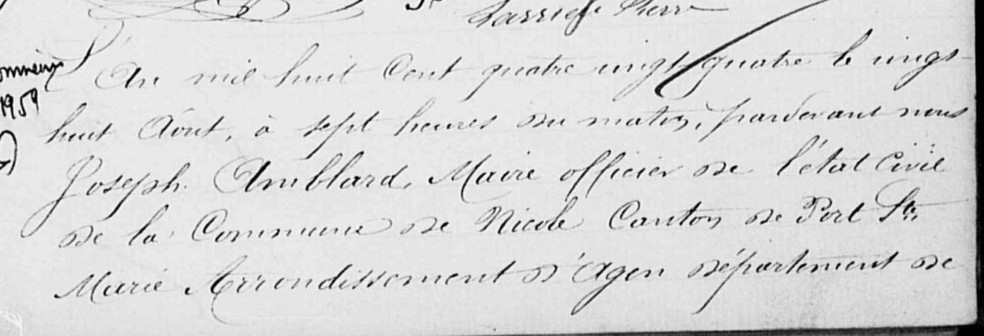 Larrieu Pierre
L'An mil huit Cent quatre vingt quatre le vingt-
1959
huit Août, à sept heures du matin, pardevant nous
Joseph Amblard, Maire officier de l'état Civil
de la Commune de Nicole Canton de Port Ste
Marie Arrondissement d'Agen département de